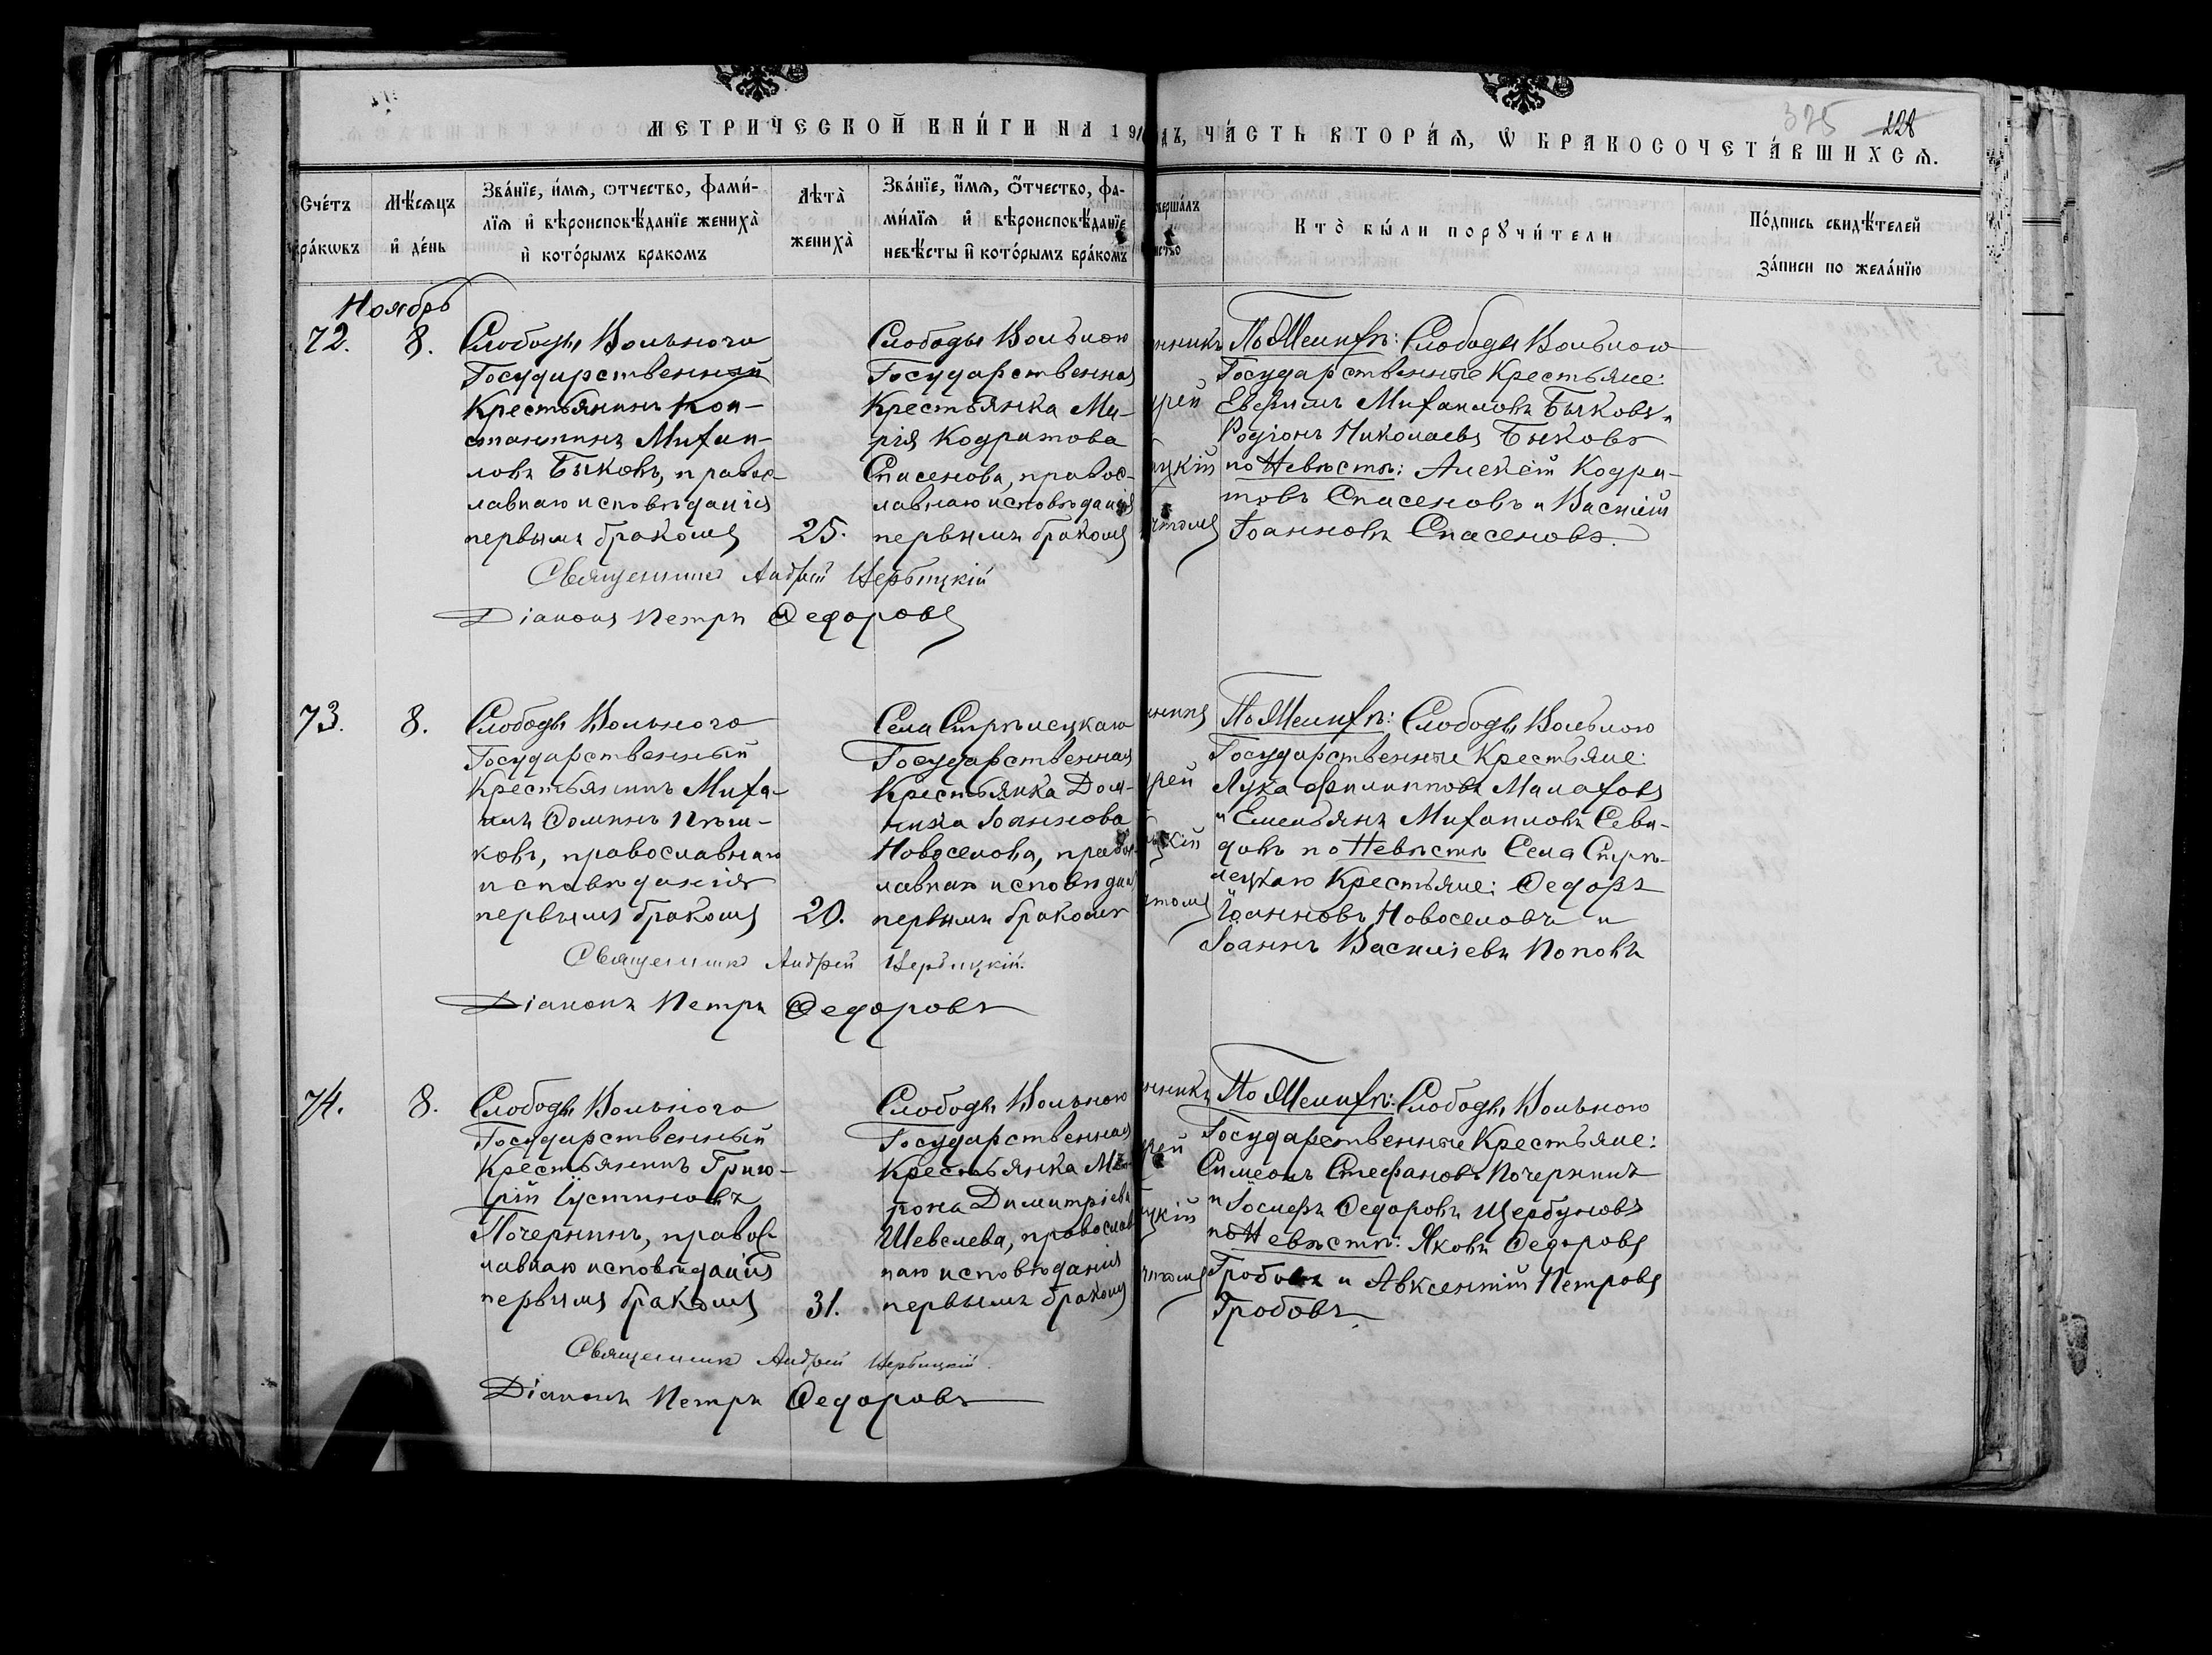 325 228
МЕТРИЧЕСКОЙ КНИ́ГИ НА 19
ДЪ, ЧА́СТЬ ВТОРА́Ѧ, Ѡ БРАКОСОЧЕТА́ВШИХСѦ.
Сче́тъ бра́кѡвъ
Мѣ́сѧцъ и де́нь
Зва́нїе, и́мѧ, ѻтчество, фами́-
лїѧ и вѣроисповѣ́данїе жениха̀
и кото́рымъ бракомъ
Лѣта̀ жениха̀
Зва́нїе, и́мѧ, ѻтчество, фа-
ми́лїѧ и вѣроисповѣ́данїе
невѣ́сты и кото́рымъ бра́комъ
верша́лъ
нство
Кто̀ бы́ли порꙋчи́тели
По́дпись свидѣ́телей
за́писи по жела́нїю
Ноябрь
72.
8.
Слободы Вольного
Государственный
Крестьянинъ Кон-
стантинъ Михаи-
ловъ Быковъ, правос-
лавнаго исповѣданія
первымъ бракомъ
25.
Слободы Вольного
Государственная
Крестьянка Ма-
рія Кодратова
Спасенова, правос-
лавнаго исповѣданія
первымъ бракомъ
нникъ
рей
цкій
томъ
По Женихѣ: Слободы Вольного
Государственные Крестьяне:
Евфимъ Михаиловъ Быковъ и
Родіонъ Николаевъ Быковъ
по Невѣстѣ: Алексій Кодра-
товъ Спасеновъ и Василій
Іоанновъ Спасеновъ.
Священникъ Андрей Щербицкій
Діаконъ Петръ Ѳедоровъ
73.
8.
Слободы Вольного
Государственный
Крестьянинъ Миха-
илъ Ѳоминъ Пѣш-
ковъ, православнаго
исповѣданія
первымъ бракомъ
20.
Села Стрѣлецкаго
Государственная
Крестьянка Дом-
ника Іоаннова
Новоселова, правос-
лавнаго исповѣдан
первымъ бракомъ
нникъ
рей
цкій
томъ
По Женихѣ: Слободы Вольного
Государственные Крестьяне:
Лука Филипповъ Малаховъ
и Емельянъ Михаиловъ Сева-
довъ по Невѣстѣ Села Стрѣ-
лецкаго Крестьяне: Ѳедоръ
Іоанновъ Новоселовъ и
Іоаннъ Василіевъ Поповъ
Священникъ Андрей Щербицкій.
Діаконъ Петръ Ѳедоровъ
74.
8.
Слободы Вольного
Государственный
Крестьянинъ Григо-
рій Іустиновъ
Почернинъ, правос-
лавнаго исповѣданія
первымъ бракомъ
31.
Слободы Вольного
Государственная
Крестьянка Мат-
рона Димитріева
Шевелева, православ
наго исповѣданія
первымъ бракомъ
нникъ
рей
цкій
томъ
По Женихѣ: Слободы Вольного
Государственные Крестьяне:
Симеонъ Стефановъ Почернинъ
и Іосифъ Ѳедоровъ Щербуновъ
по Невѣстѣ: Яковъ Ѳедоровъ
Гробовъ и Авксентій Петровъ
Гробовъ.
Священникъ Андрей Щербицкій.
Діаконъ Петръ Ѳедоровъ